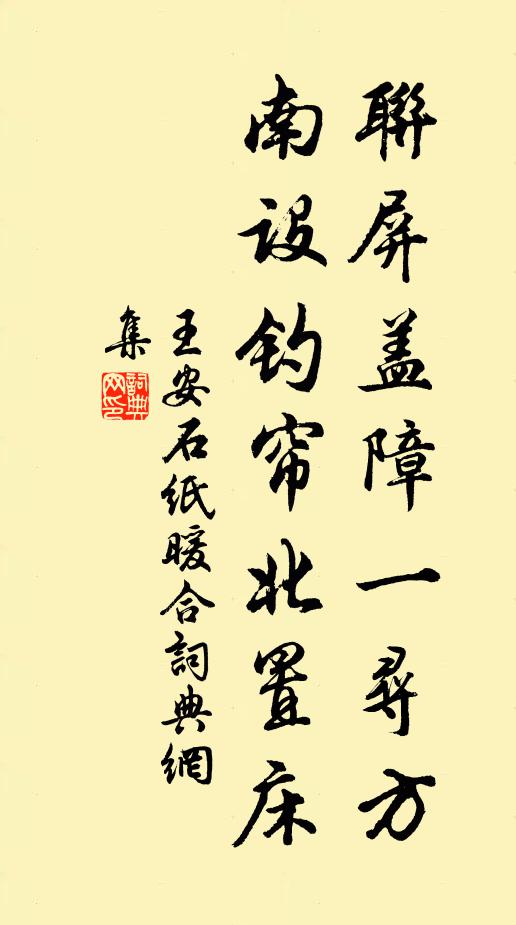 聯屏盖障一尋方
南設鈎帘北置床
王安石紙暖合詞典網
集
詞典
网印